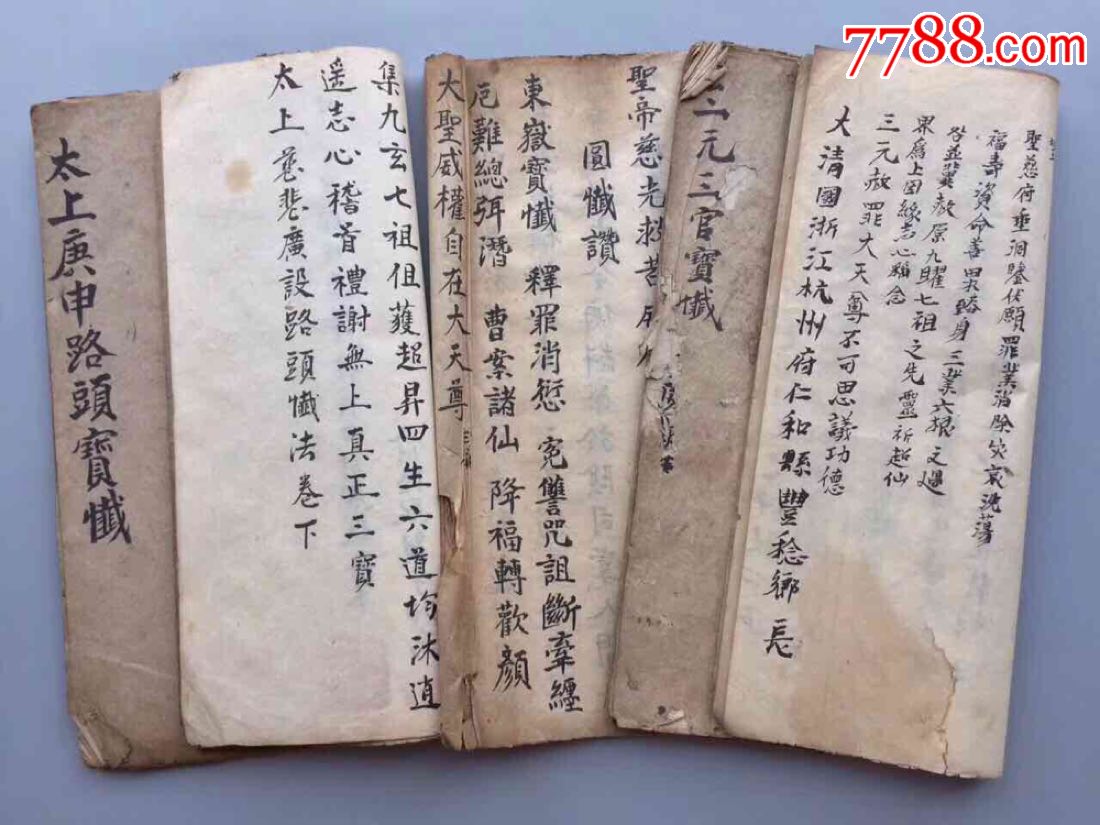 7788.com
聖慈府垂洞鑒伏願罪業消除災衰洗蕩
福壽資命善果臻身三業六根之過
咎並冀赦原九矅七祖之先靈祈超仙
界爲上因緣志心稱念
三元赦罪大天尊不可思議功德
大清國浙江杭州府仁和縣豐稔鄉長
三元三官寶懺
聖帝慈光救苦
圓懺讚
東嶽寶懺 釋罪消愆 冤讐咒詛斷牽纏
厄難總弭潛 曹案諸仙 降福轉歡顏
大聖威權自在大天尊
集九玄七祖俱獲超昇四生六道均沐逍
遥志心稽首禮謝無上真正三寶
太上慈悲廣設路頭懺法卷下
太上庚申路頭寶懺